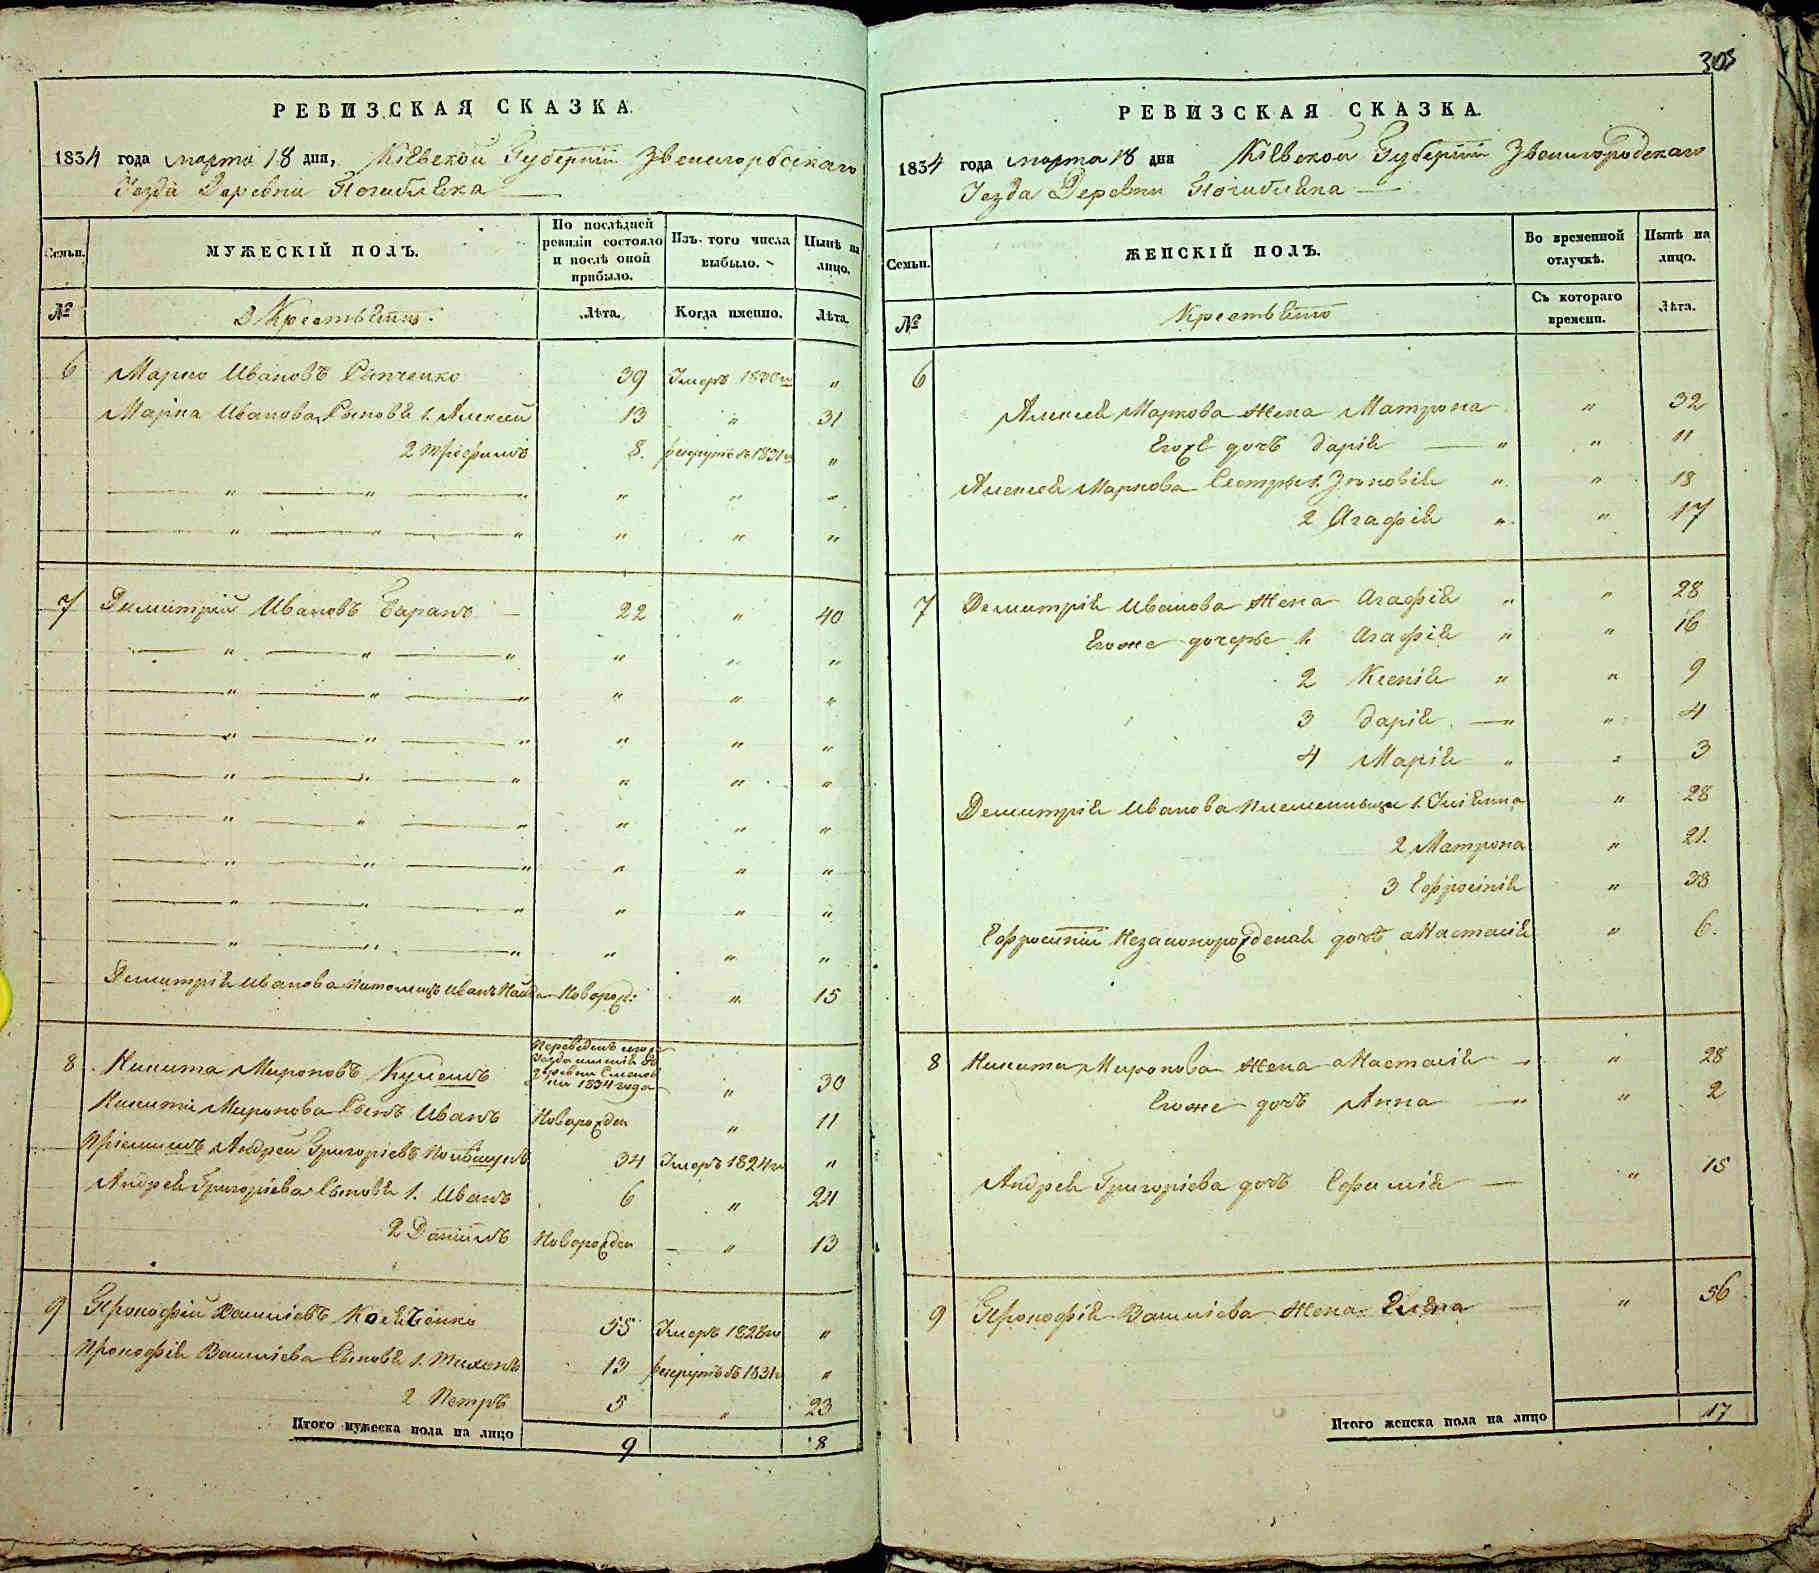 РЕВИЗСКАЯ СКАЗКА.
1834 года марта 18 дня, Кіевской Губерніи Звенигородскаго
Уезда Деревни Погибляка
Семьи.
МУЖЕСКІЙ ПОЛЪ.
По послѣдней ревизіи состояло и послѣ оной прибыло.
Изъ того числа выбыло.
Нынѣ на лицо.
№
Крестьяне.
Лѣта.
Когда именно.
Лѣта.
6 Марко Ивановъ 39 Умеръ 1830 го "
Марка Иванова Сыновья 1. Алексей 13 " 31
2 Трофимъ 8. рекрутъ въ 1831 го "
" " " " " "
" " " " " "
7 Димитрій Ивановъ Баранъ 22 " 40
" " " " " "
" " " " " "
" " " " " "
" " " " " "
" " " " " "
" " " " " "
" " " " " "
" " " " " "
Димитрія Иванова питомецъ Иванъ Новорож: " 15
8 Никита Мироновъ Кулешъ Переведенъ деревни 1834 года " 30
Никиты Миронова Сынъ Иванъ Новорожден " 11
Пріемышъ Андрей Григоріевъ 34 Умеръ 1824 го "
Андрея Григоріева Сыновья 1. Иванъ 6 " 24
2 Даніилъ Новорожден " 13
9 Прокофій Василіевъ 55 Умеръ 1828 го "
Прокофія Василіева Сыновья 1. Тихонъ 13 рекрутъ въ 1831 "
2 Петръ 5 " 23
Итого мужеска пола на лицо 9 8
305
РЕВИЗСКАЯ СКАЗКА.
1834 года марта 18 дня Кіевской Губерніи Звенигородскаго
Уезда Деревни Погибляка
Семьи.
ЖЕНСКІЙ ПОЛЪ.
Во временной отлучкѣ.
Нынѣ на лицо.
№
Крестьяне
Съ котораго времени.
Лѣта.
6
Алексея Маркова жена Матрона " 32
Егоже дочь Дарія " " 11
Алексея Маркова Сестры 1. Зѣновія " " 18
2 Агафія " " 17
7 Димитрія Иванова жена Агафія " " 28
Егоже дочери 1. Агафія " " 16
2 Ксенія " " 9
3 Дарія " " 4
4 Марія " " 3
Димитрія Иванова племянницы 1. Уліянна " 28
2 Матрона " 21.
3 Ефросинія " 38
Ефросиніи Незаконорожденая дочь Настасія " 6.
8 Никиты Миронова жена Настасія " 28
Егоже дочь Анна " " 2
Андрея Григоріева дочь Ефимія " 15
9 Прокофія Василіева жена Елена " 56
Итого женска пола на лицо 17